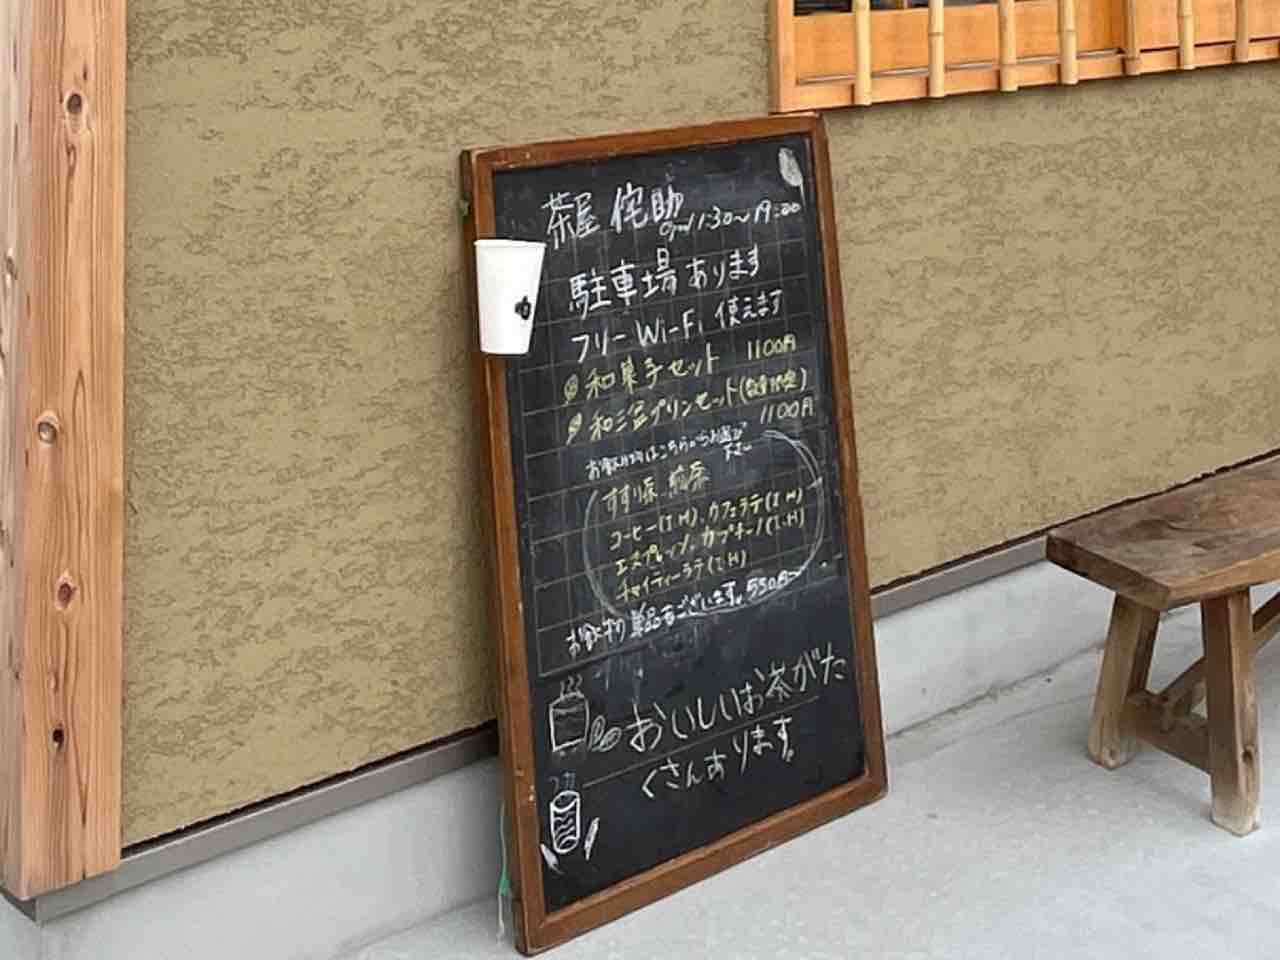 茶屋 侘助
11:30～19:00
駐車場あります
フリーWi-Fi 使えます
和菓子セット 1100円
和三盆プリンセット(数量限定)
1100円
お飲み物はこちらからお選び
下さい
すすり茶、煎茶
コーヒー(I.H)、カフェラテ(I.H)
エスプレッソ、カプチーノ(I.H)
チャイティーラテ(I.H)
お飲み物単品もございます。550円～
おいしいお茶がた
くさんあります。